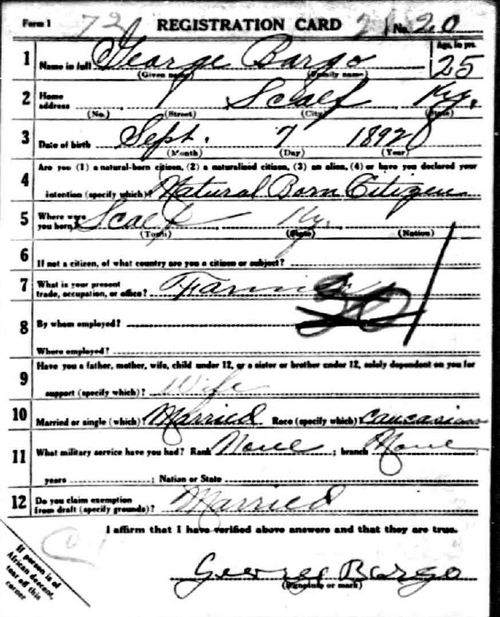 Form 1 REGISTRATION CARD No. 20
1 Name in full George Bargo Age, in yrs. 25
(Given name) (Family name)
2 Home address Scalf Ky.
(No.) (Street) (City) (State)
3 Date of birth Sept. 7 1892
(Month) (Day) (Year)
4 Are you (1) a natural-born citizen, (2) a naturalized citizen, (3) an alien, (4) or have you declared your
intention (specify which)? Natural Born Citizen
5 Where were you born? Scalf Ky.
(Town) (State) (Nation)
6 If not a citizen, of what country are you a citizen or subject?
7 What is your present trade, occupation, or office? Farmer
8 By whom employed?
Where employed?
9 Have you a father, mother, wife, child under 12, or a sister or brother under 12, solely dependent on you for
support (specify which)? Wife
10 Married or single (which)? Married Race (specify which)? Caucasian
11 What military service have you had? Rank None ; branch None
years ; Nation or State
12 Do you claim exemption from draft (specify grounds)? Married
I affirm that I have verified above answers and that they are true.
George Bargo
(Signature or mark)
If person is of
African descent,
tear off this
corner